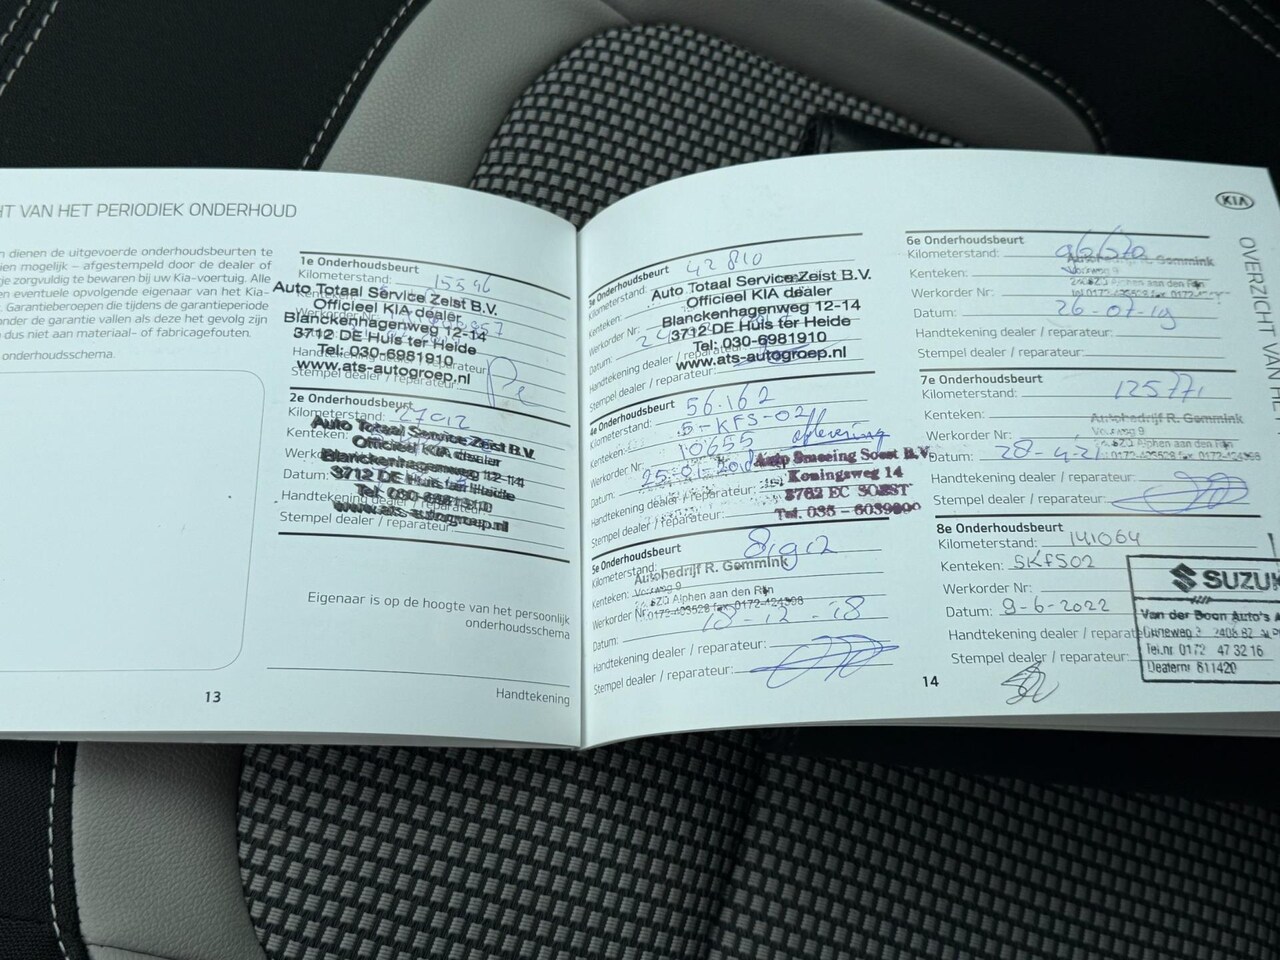 HT VAN HET PERIODIEK ONDERHOUD
n dienen de uitgevoerde onderhoudsbeurten te
ien mogelijk – afgestempeld door de dealer of
ge zorgvuldig te bewaren bij uw Kia-voertuig. Alle
en eventuele opvolgende eigenaar van het Kia-
. Garantieberoepen die tijdens de garantieperiode
onder de garantie vallen als deze het gevolg zijn
dus niet aan materiaal- of fabricagefouten.
onderhoudsschema.
13
1e Onderhoudsbeurt
Kilometerstand: 15596
Auto Totaal Service Zeist B.V.
Officieel KIA dealer
Blanckenhagenweg 12-14
3712 DE Huis ter Heide
Tel: 030-6981910
www.ats-autogroep.nl
Stempel dealer / reparateur:
2e Onderhoudsbeurt
Kilometerstand: 27012
Kenteken:
Auto Totaal Service Zeist B.V.
Officieel KIA dealer
Werkorder Nr:
Blanckenhagenweg 12-14
Datum:
3712 DE Huis ter Heide
Handtekening dealer / reparateur:
www.ats-autogroep.nl
Stempel dealer / reparateur:
Eigenaar is op de hoogte van het persoonlijk
onderhoudsschema
Handtekening
3e Onderhoudsbeurt
42810
Kilometerstand:
Auto Totaal Service Zeist B.V.
Officieel KIA dealer
Kenteken:
Blanckenhagenweg 12-14
Werkorder Nr:
3712 DE Huis ter Heide
Datum:
Tel: 030-6981910
Handtekening dealer / reparateur:
www.ats-autogroep.nl
Stempel dealer / reparateur:
4e Onderhoudsbeurt
Kilometerstand: 56.162
Kenteken: 5-KFS-02
Werkorder Nr: 10655 aflevering
Datum: 25-01-
Auto Smeeing Soest B.V.
Handtekening dealer / reparateur:
Koningsweg 14
3762 EC SOEST
Stempel dealer / reparateur:
Tel. 035 –
5e Onderhoudsbeurt
Kilometerstand: 81912
Autobedrijf R. Gemmink
Kenteken:
Alphen aan den Rijn
Werkorder Nr:
Datum: 18-12-18
Handtekening dealer / reparateur:
Stempel dealer / reparateur:
14
KIA
6e Onderhoudsbeurt
Kilometerstand: 96670
Gemmink
Kenteken:
Alphen aan den Rijn
Werkorder Nr:
Datum: 26-07-19
Handtekening dealer / reparateur:
Stempel dealer / reparateur:
7e Onderhoudsbeurt
Kilometerstand: 125771
Kenteken:
Autobedrijf R. Gemmink
Werkorder Nr:
Alphen aan den Rijn
Datum: 28-4-21
Handtekening dealer / reparateur:
Stempel dealer / reparateur:
8e Onderhoudsbeurt
Kilometerstand: 141064
Kenteken: 5KFS02
Werkorder Nr:
Datum: 9-6-2022
Handtekening dealer /
Stempel dealer / reparateur:
SUZUK
Van der Boon Auto's
Tel.nr 0172 47 32 16
Dealernr 611420
OVERZICHT VAN HE